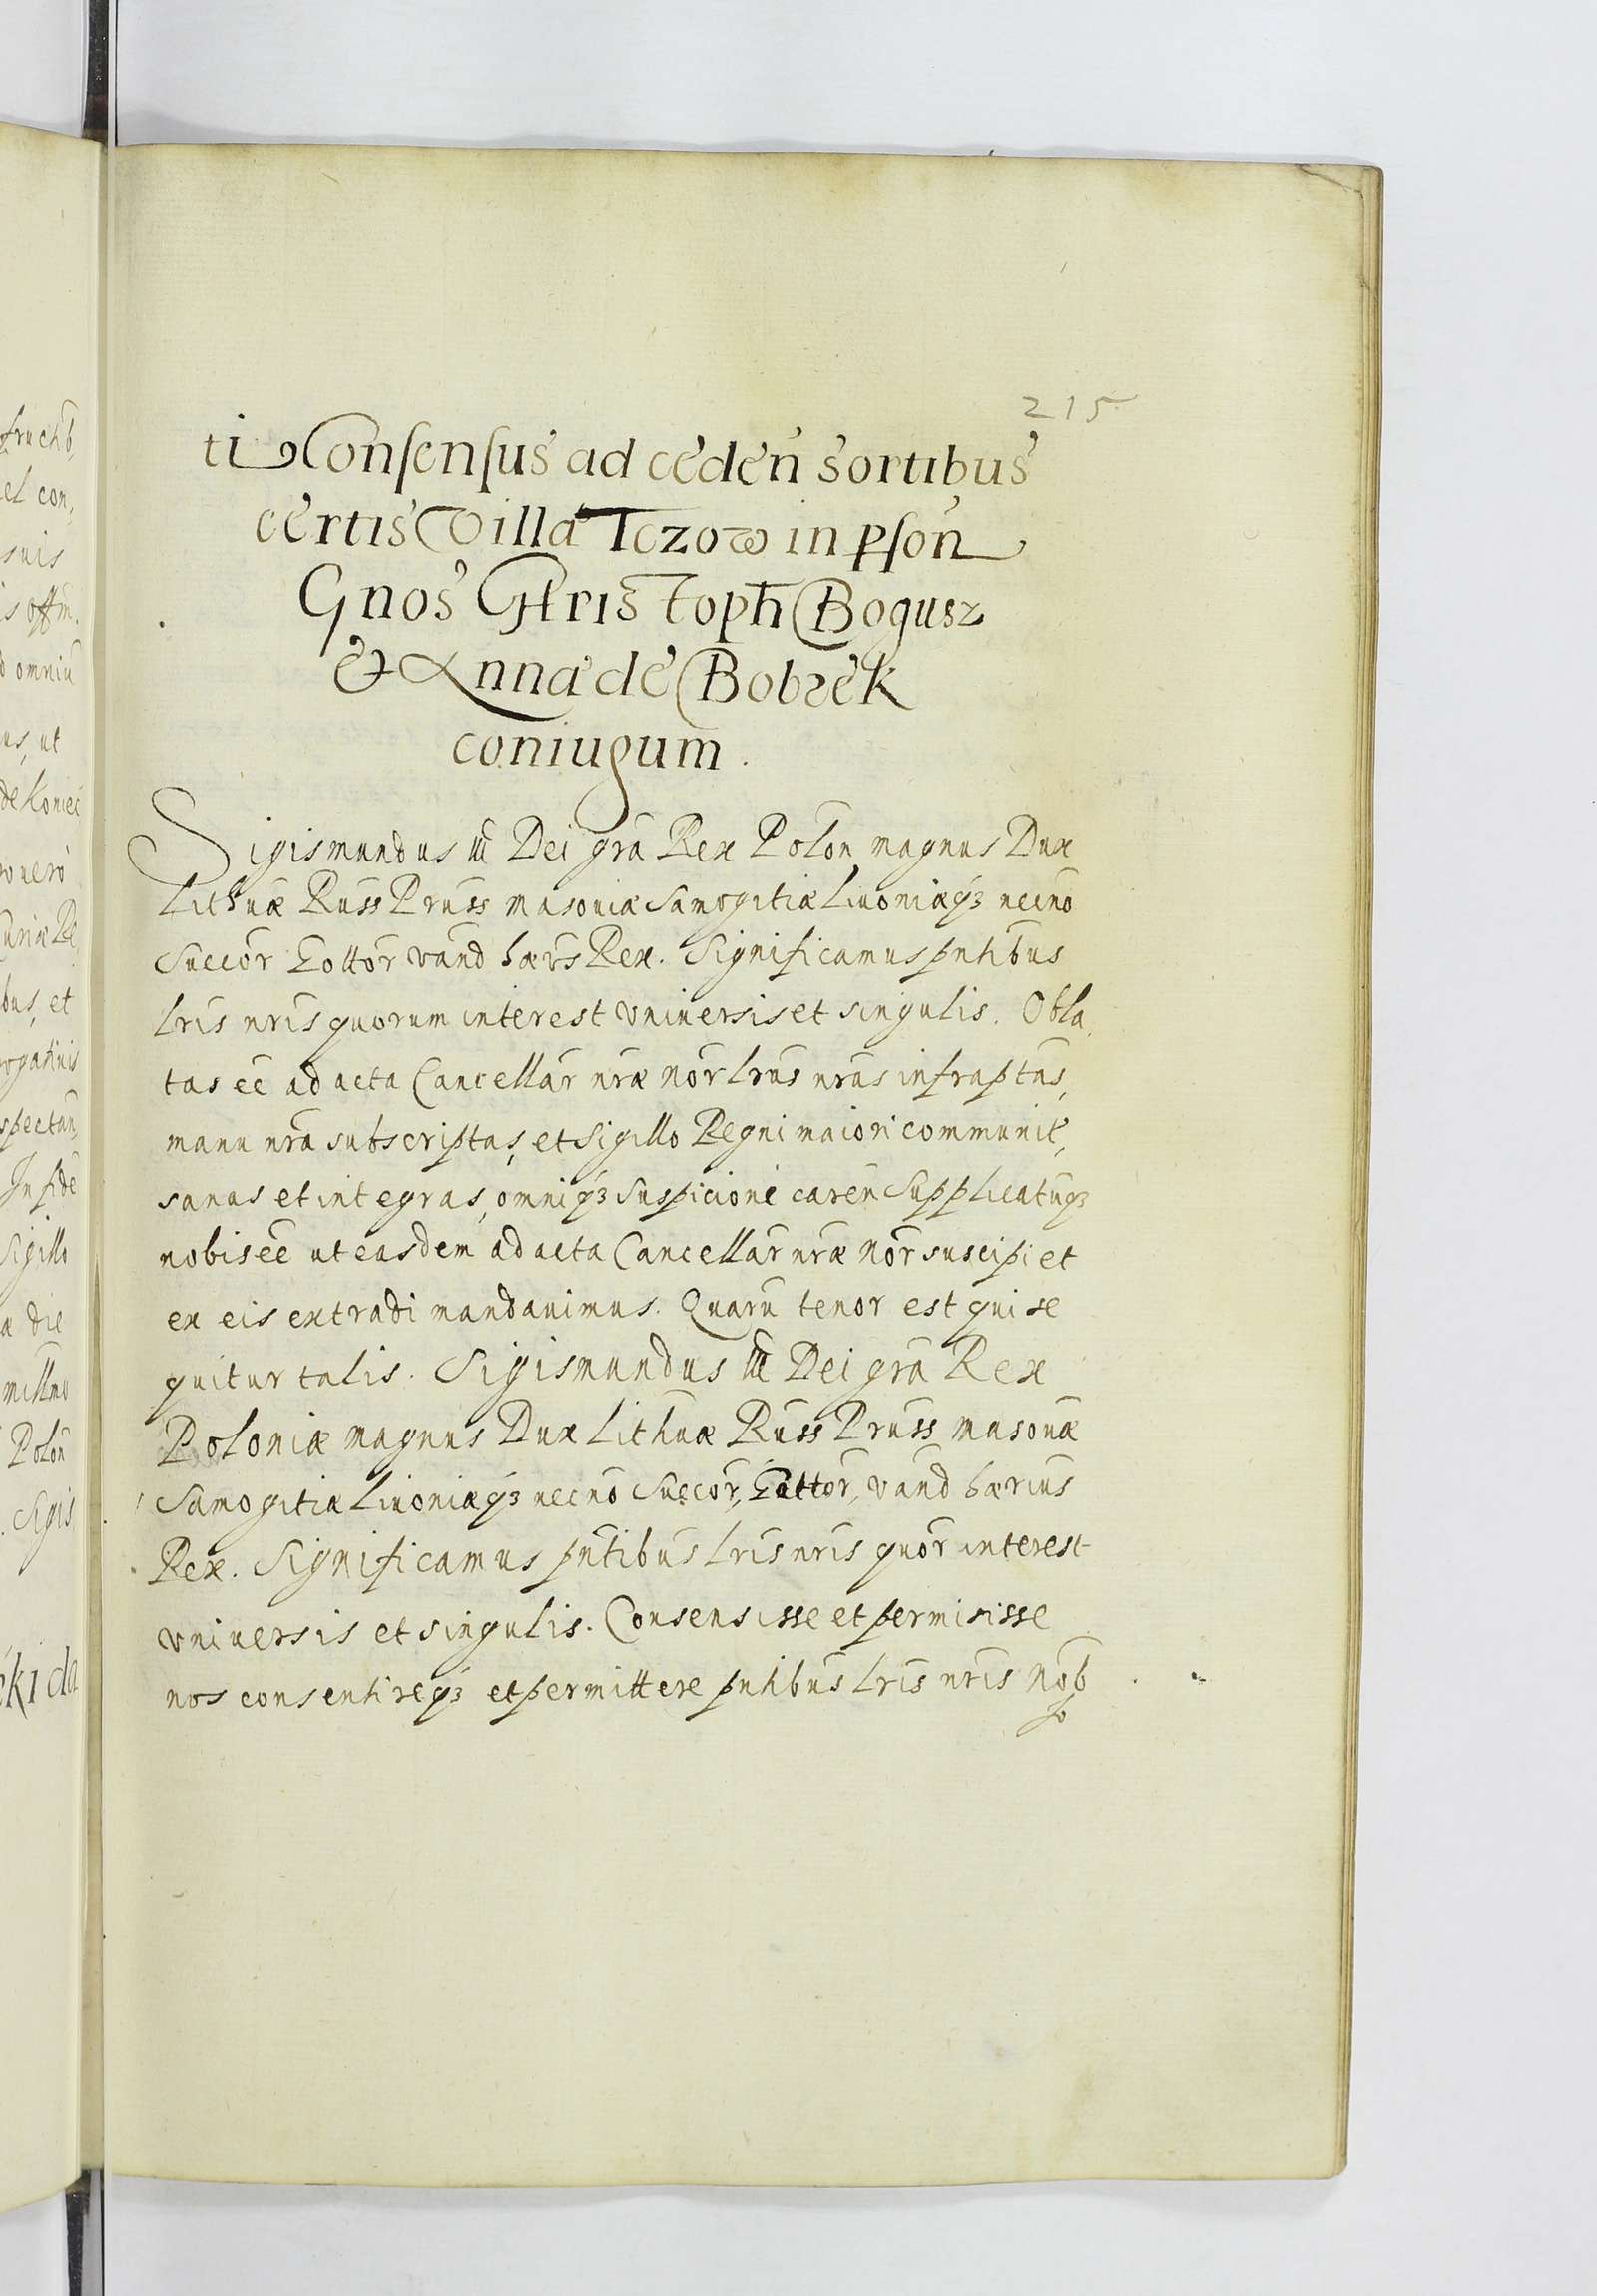 215
ti Consensus ad ceden sortibus
certis Villa Tczow in pson
Gnos Christoph Bogusz
& Anna de Bobrek
coniugum.
Sigismundus III Dei gra Rex Polon magnus Dux
Lithuæ Russ Pruss Masouiæ Samogitiæ Liuoniæq3 necno
Succor Gottor Vand hærs Rex. Significamus pntibus
lris nris quorum interest vniuersis et singulis. Obla
tas eē ad acta Cancellar nræ nor lras nras infraptas,
manu nra subscriptas, et Sigillo Regni maiori communit,
sanas et integras, omniq3 suspicione caren Supplicatuq3
nobis eē ut easdem ad acta Cancellar nræ nor suscipi et
ex eis extradi mandauimus. Quaru tenor est qui se
quitur talis. Sigismundus III Dei gra Rex
Poloniæ magnus Dux Lithuæ Russ Pruss Masouæ
Samogitiæ Liuoniæq3 necno Succor, Gottor, Vand hærius
Rex. Significamus pntibus lris nris quor interest
vniuersis et singulis. Consensisse et permisisse
nos consentireq3 et permittere pntibus lris nris Nob
fructib,
el con,
suis
is offm.
omniu
us, ut
de Koniec
uero
bus, et
rogatiuis
spectan,
In fide
Sigillo
a die
millmo
Polon
. Sigis
ēki da